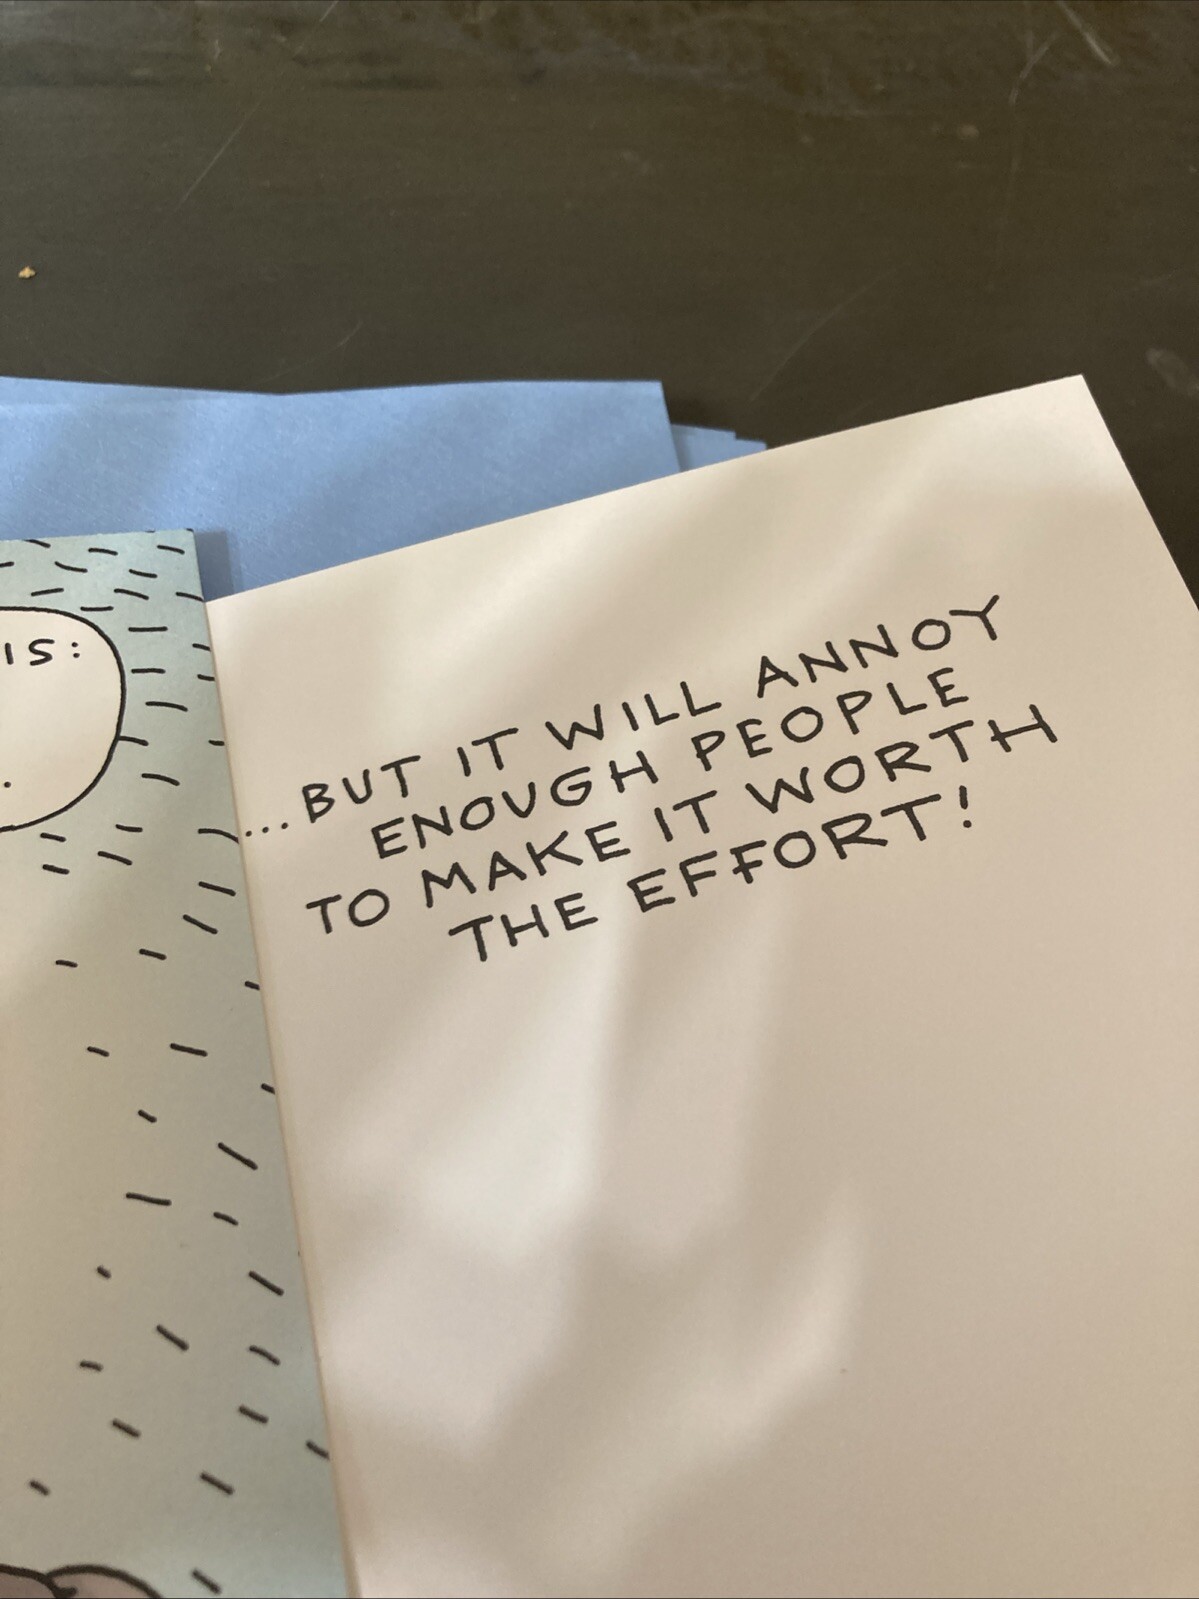 IS:
.
...BUT IT WILL ANNOY
ENOUGH PEOPLE
TO MAKE IT WORTH
THE EFFORT!